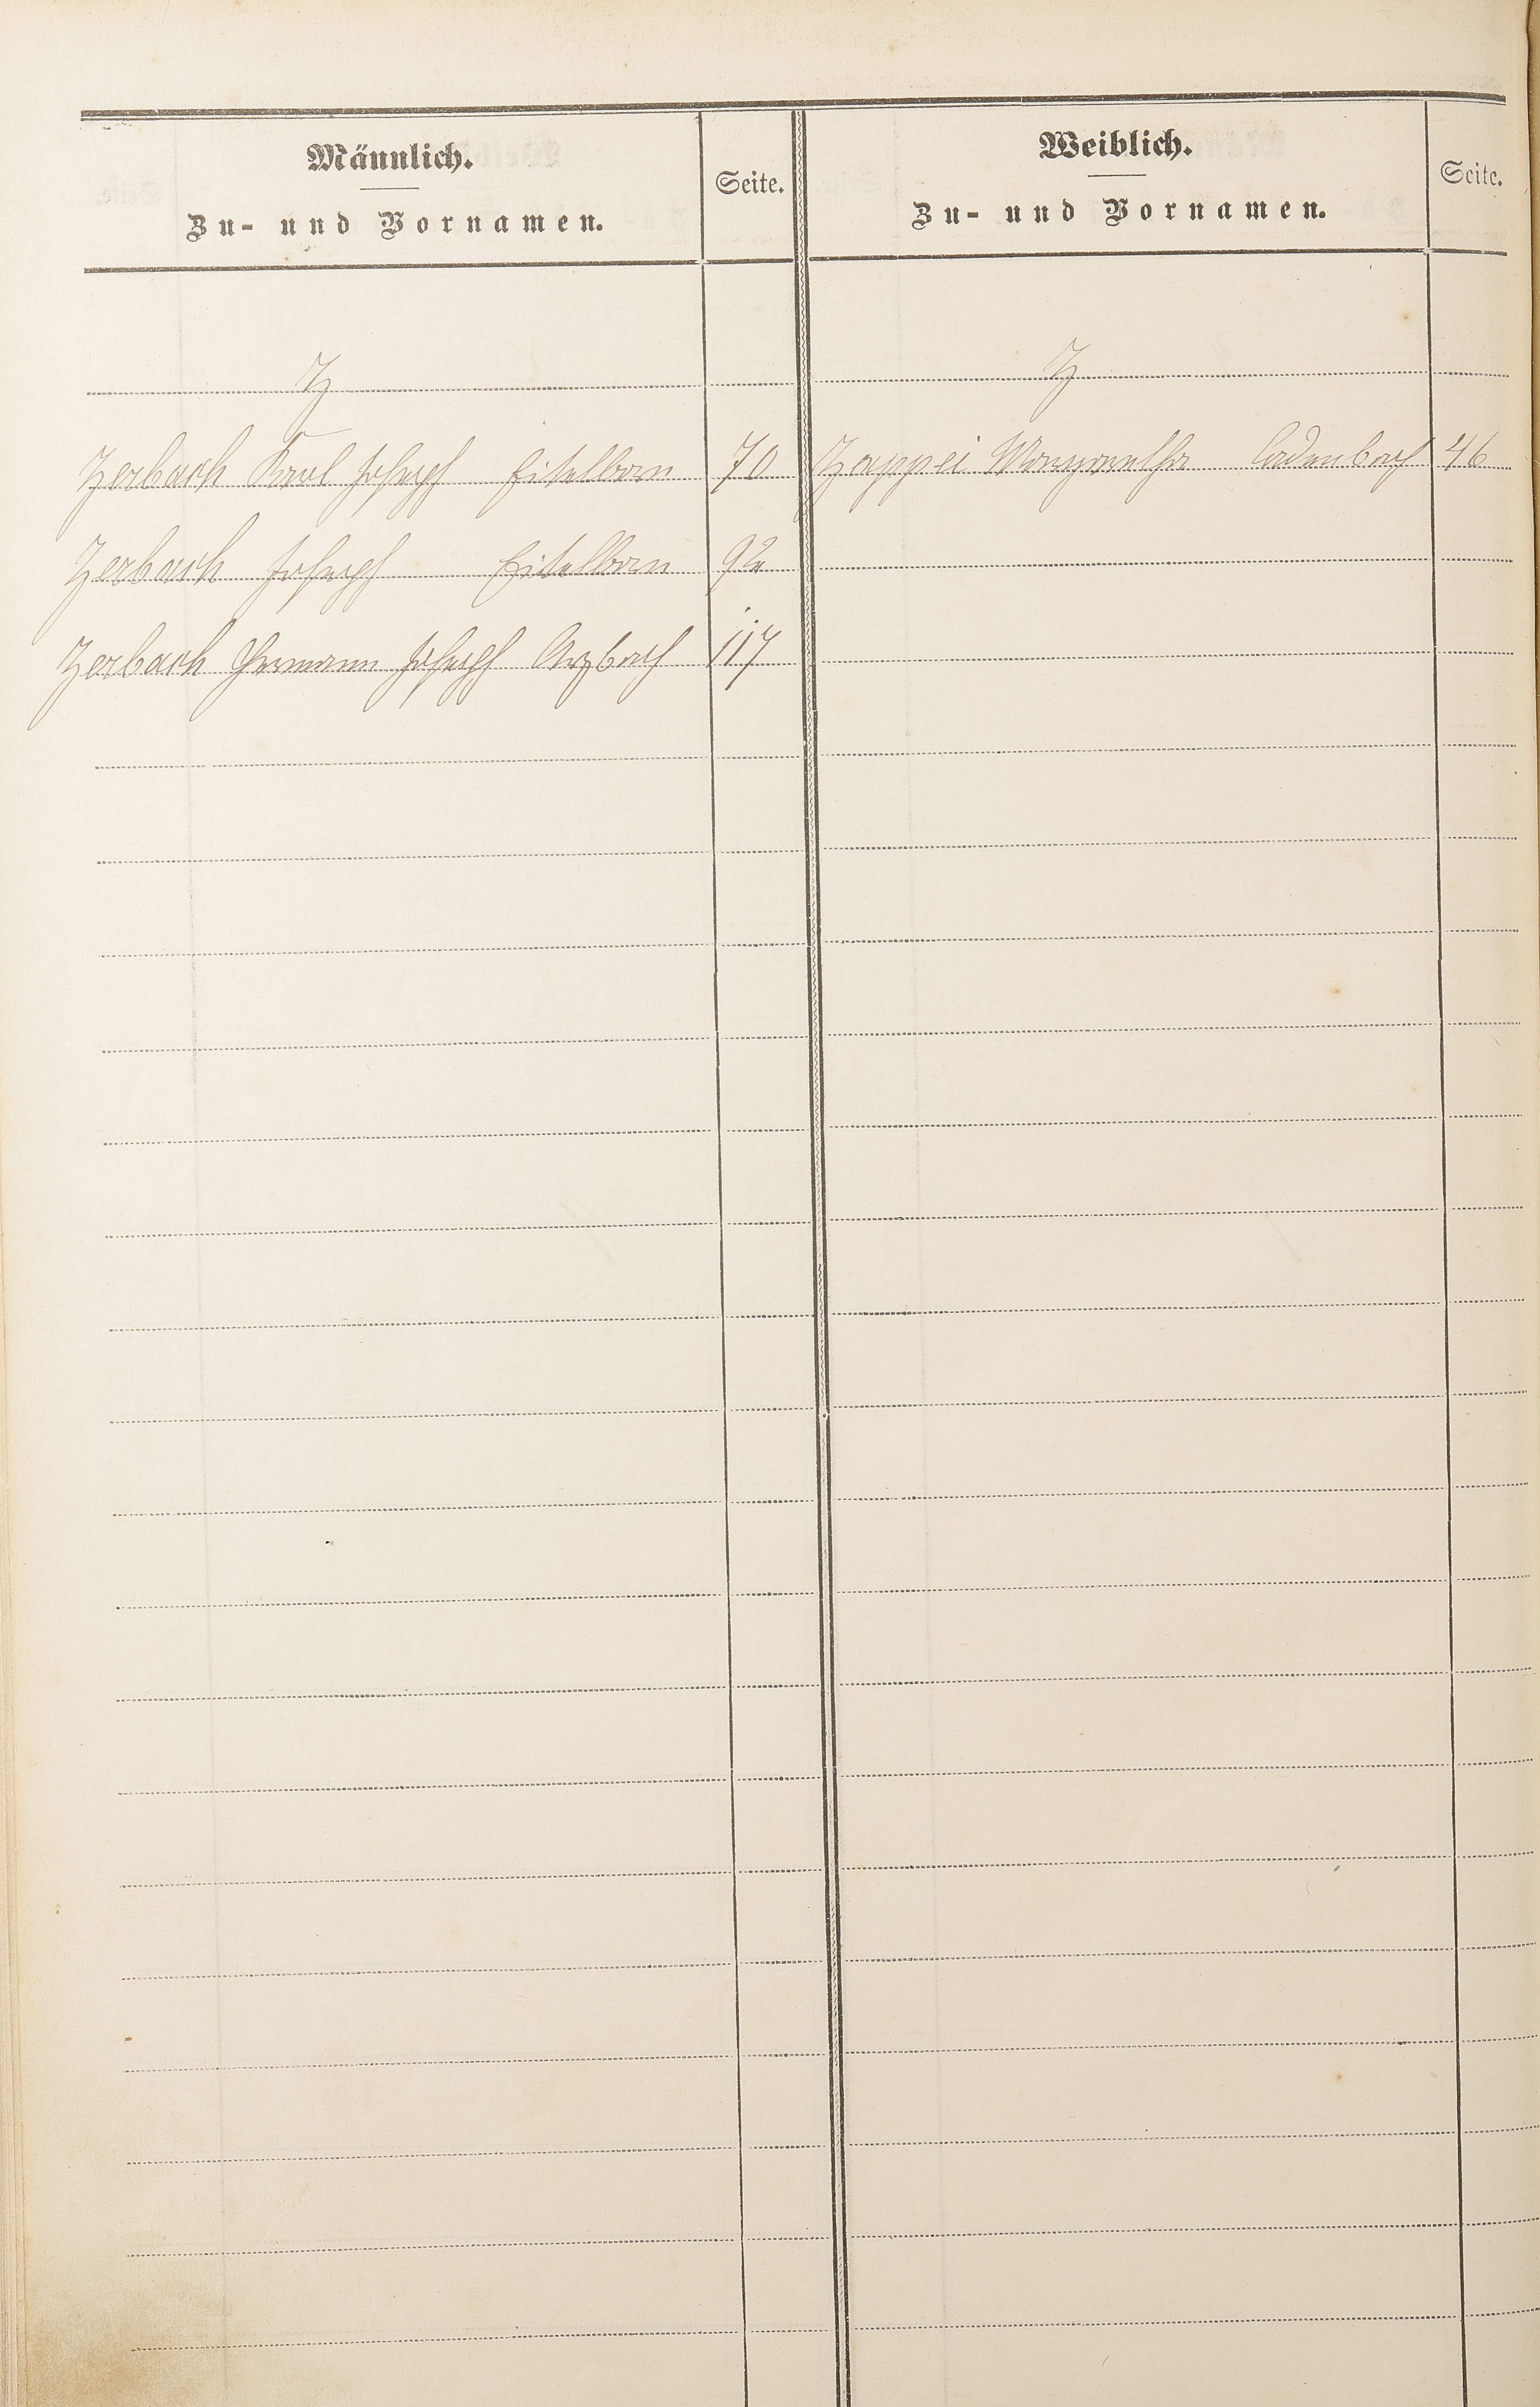 Männlich.
Zu- und Vornamen.
Seite.
Z
Zerbach Karl Joseph Eitelborn 70
Zerbach Joseph Eitelborn 92
Zerbach Hermann Joseph Arzbach 117
Weiblich.
Zu- und Vornamen.
Seite.
Z
Zappei Margaretha Cadenbach 46